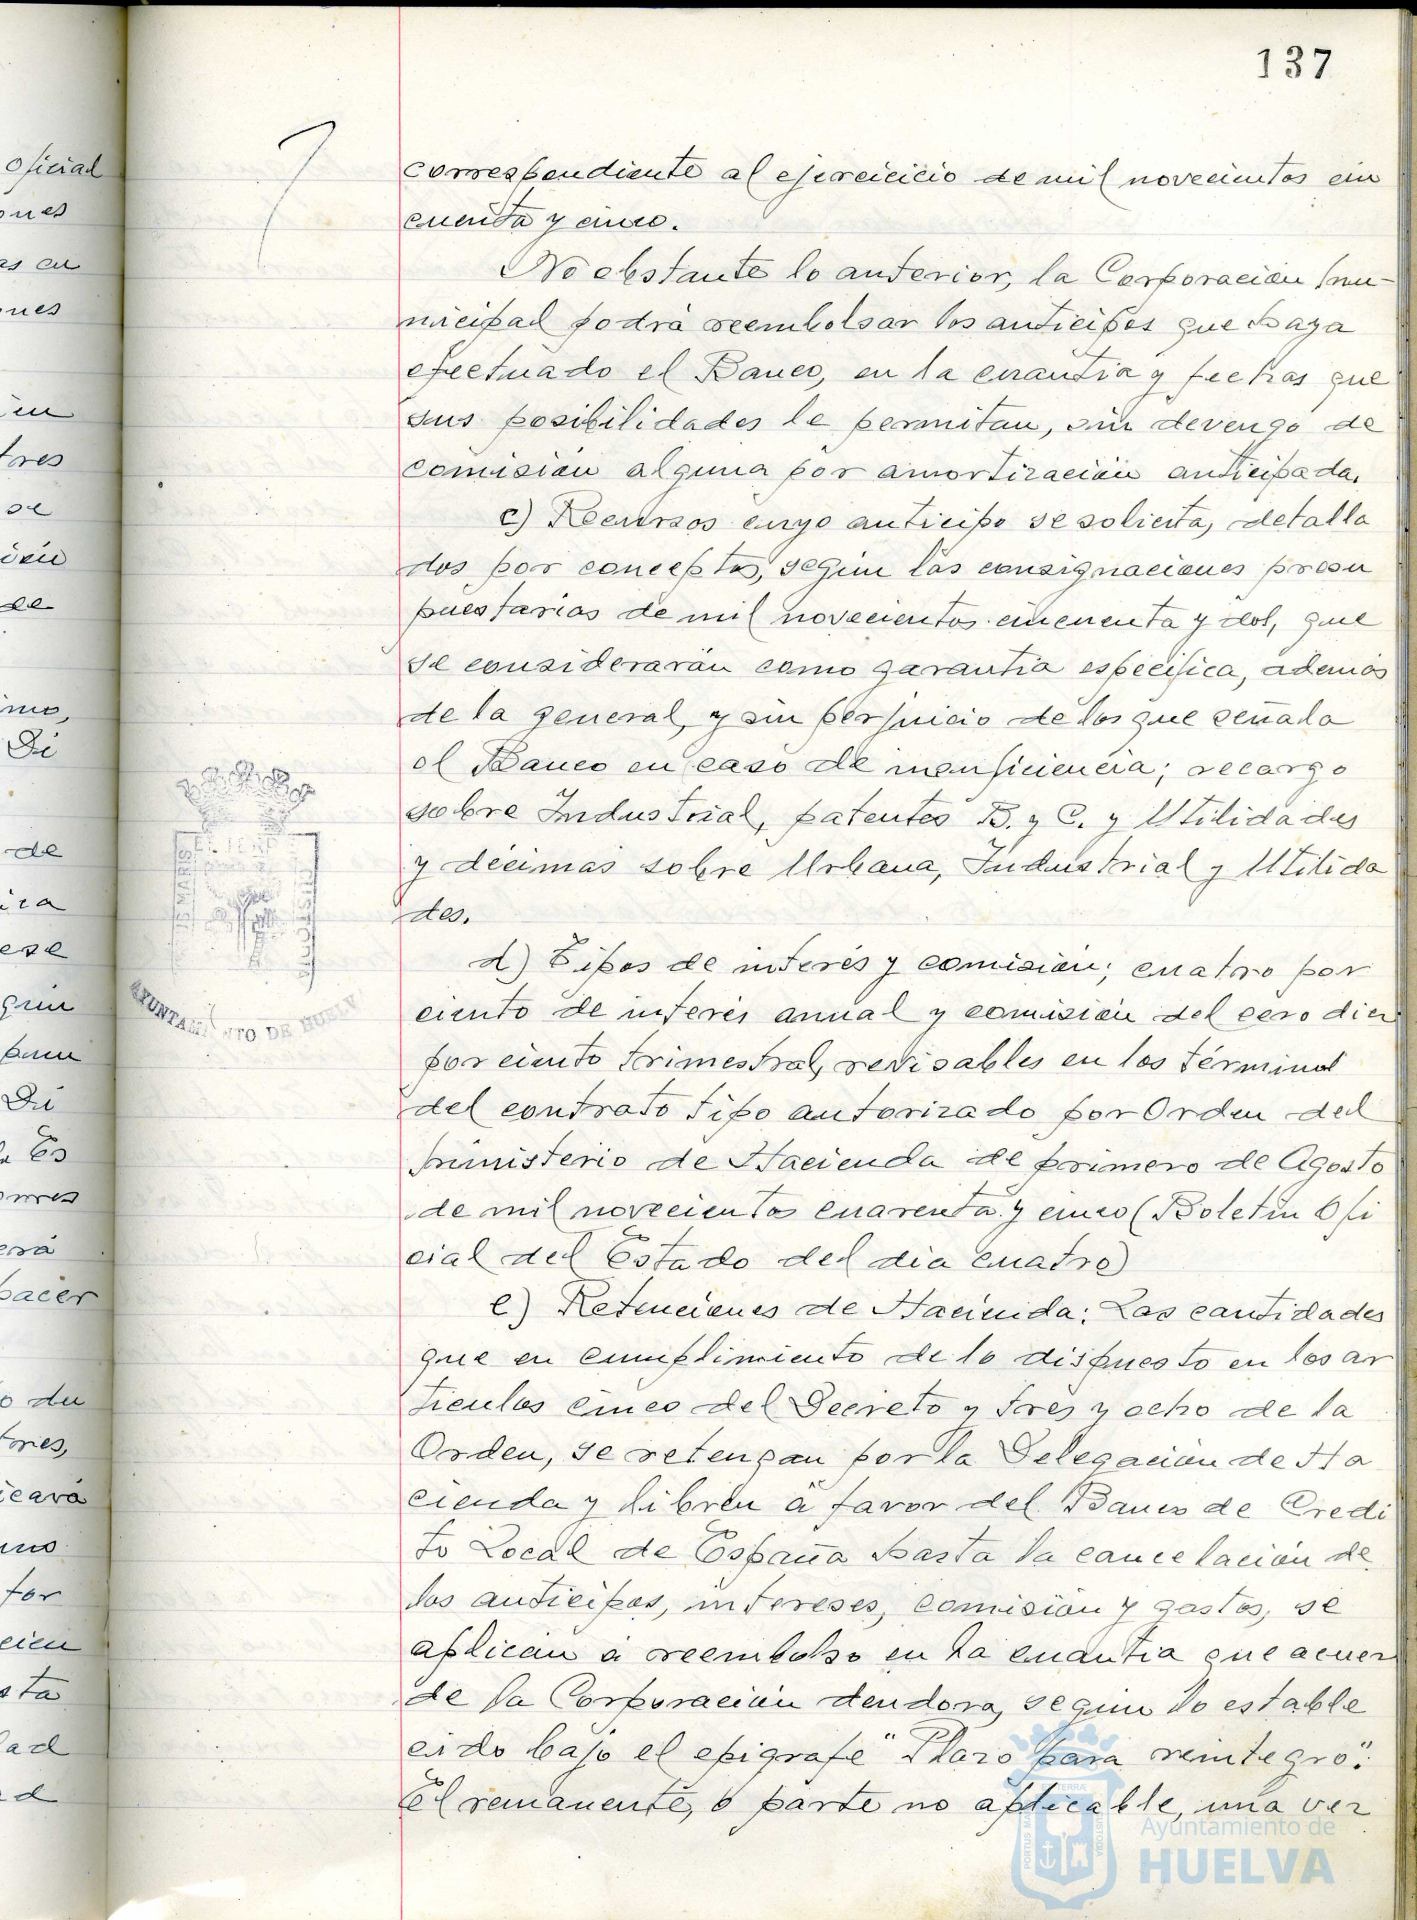 137
oficial
ones
as en
ones
tres
se
de
imo,
Di
de
ese
Di
Es
erá
hacer
tores,
icará
uno
for
sta
correspendiente al ejercicicio de mil novecientos cin
cuenta y cinco.
No obstante lo anterior, la Corporación mu-
nicipal podrá reembolsar los anticipos que haya
efectuado el Banco, en la cuantia y fechas que
sus posibilidades le permitan, sin devengo de
comisión alguna por amortización anticipada.
c) Recursos cuyo anticipo se solicita, detalla
dos por conceptos, según las consignaciones presu
puestarias de mil novecientos cincuenta y dos, que
se considerarán como garantia especifica, además
de la general, y sin perjuicio de los que señala
el Banco en caso de insuficiencia; recargo
sobre Industrial, patentes B. y C. y Utilidades
y décimas sobre Urbana, Industrial y Utilida
des.
d) Tipos de interés y comisión; cuatro por
ciento de interés anual y comisión del cero diez
por ciento trimestral, revisables en los términos
del contrato tipo autorizado por Orden del
Ministerio de Hacienda de primero de Agosto
de mil novecientos cuarenta y cinco (Boletin Ofi
cial del Estado del dia cuatro)
e) Retenciones de Hacienda: Las cantidades
que en cumplimiento de lo dispuesto en los ar
ticulos cinco del Decreto y tres y ocho de la
Orden, se retengan por la Delegación de Ha
cienda y libren a favor del Banco de Credi
to Local de España hasta la cancelación de
los anticipos, intereses, comisión y gastos, se
aplican a reembolso en la cuantia que acuer
de la Corporación deudora, según lo estable
cido bajo el epigrafe "Plazo para reintegro".
El remanente, o parte no aplicable, una vez
AYUNTAMIENTO DE HUELV
Ayuntamiento de
HUELVA